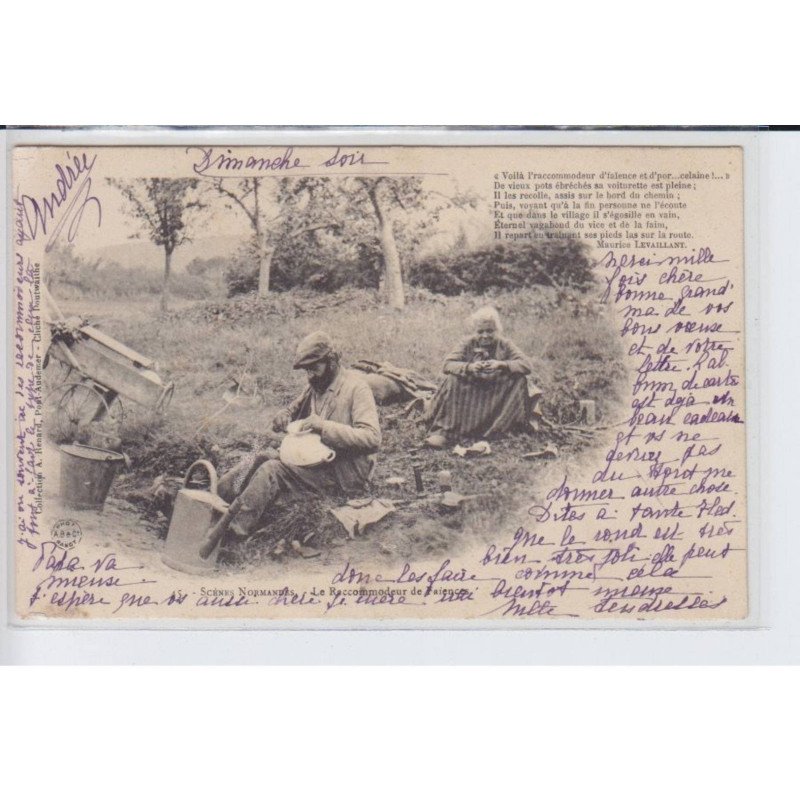 Dimanche soir
Andrée
« Voilà l'raccommodeur d'faïence et d'por...celaine !... »
De vieux pots ébréchés sa voiturette est pleine ;
Il les recolle, assis sur le bord du chemin ;
Puis, voyant qu'à la fin personne ne l'écoute
Et que dans le village il s'égosille en vain,
Éternel vagabond du vice et de la faim,
Il repart en traînant ses pieds las sur la route.
Maurice LEVAILLANT.
Merci mille
fois chère
bonne grand'
ma de vos
bons vœux
et de votre
lettre. L'al
bum de carte
est déjà un
beau cadeau
et vs ne
devriez pas
du tout me
donner autre chose.
Dites à tante
que le rond est très
bien très joli elle peut
donc les faire comme cela
Papa va
mieux
J'espère que vs aussi chère
bientôt mieux
Mille tendresses
j'ai vu souvent
Collection A. Henard, Pont Audemer - Cliché Pontwaithe
PHOT
A.B.&C°
NANCY
15. - SCÈNES NORMANDES. - Le Raccommodeur de Faïence.